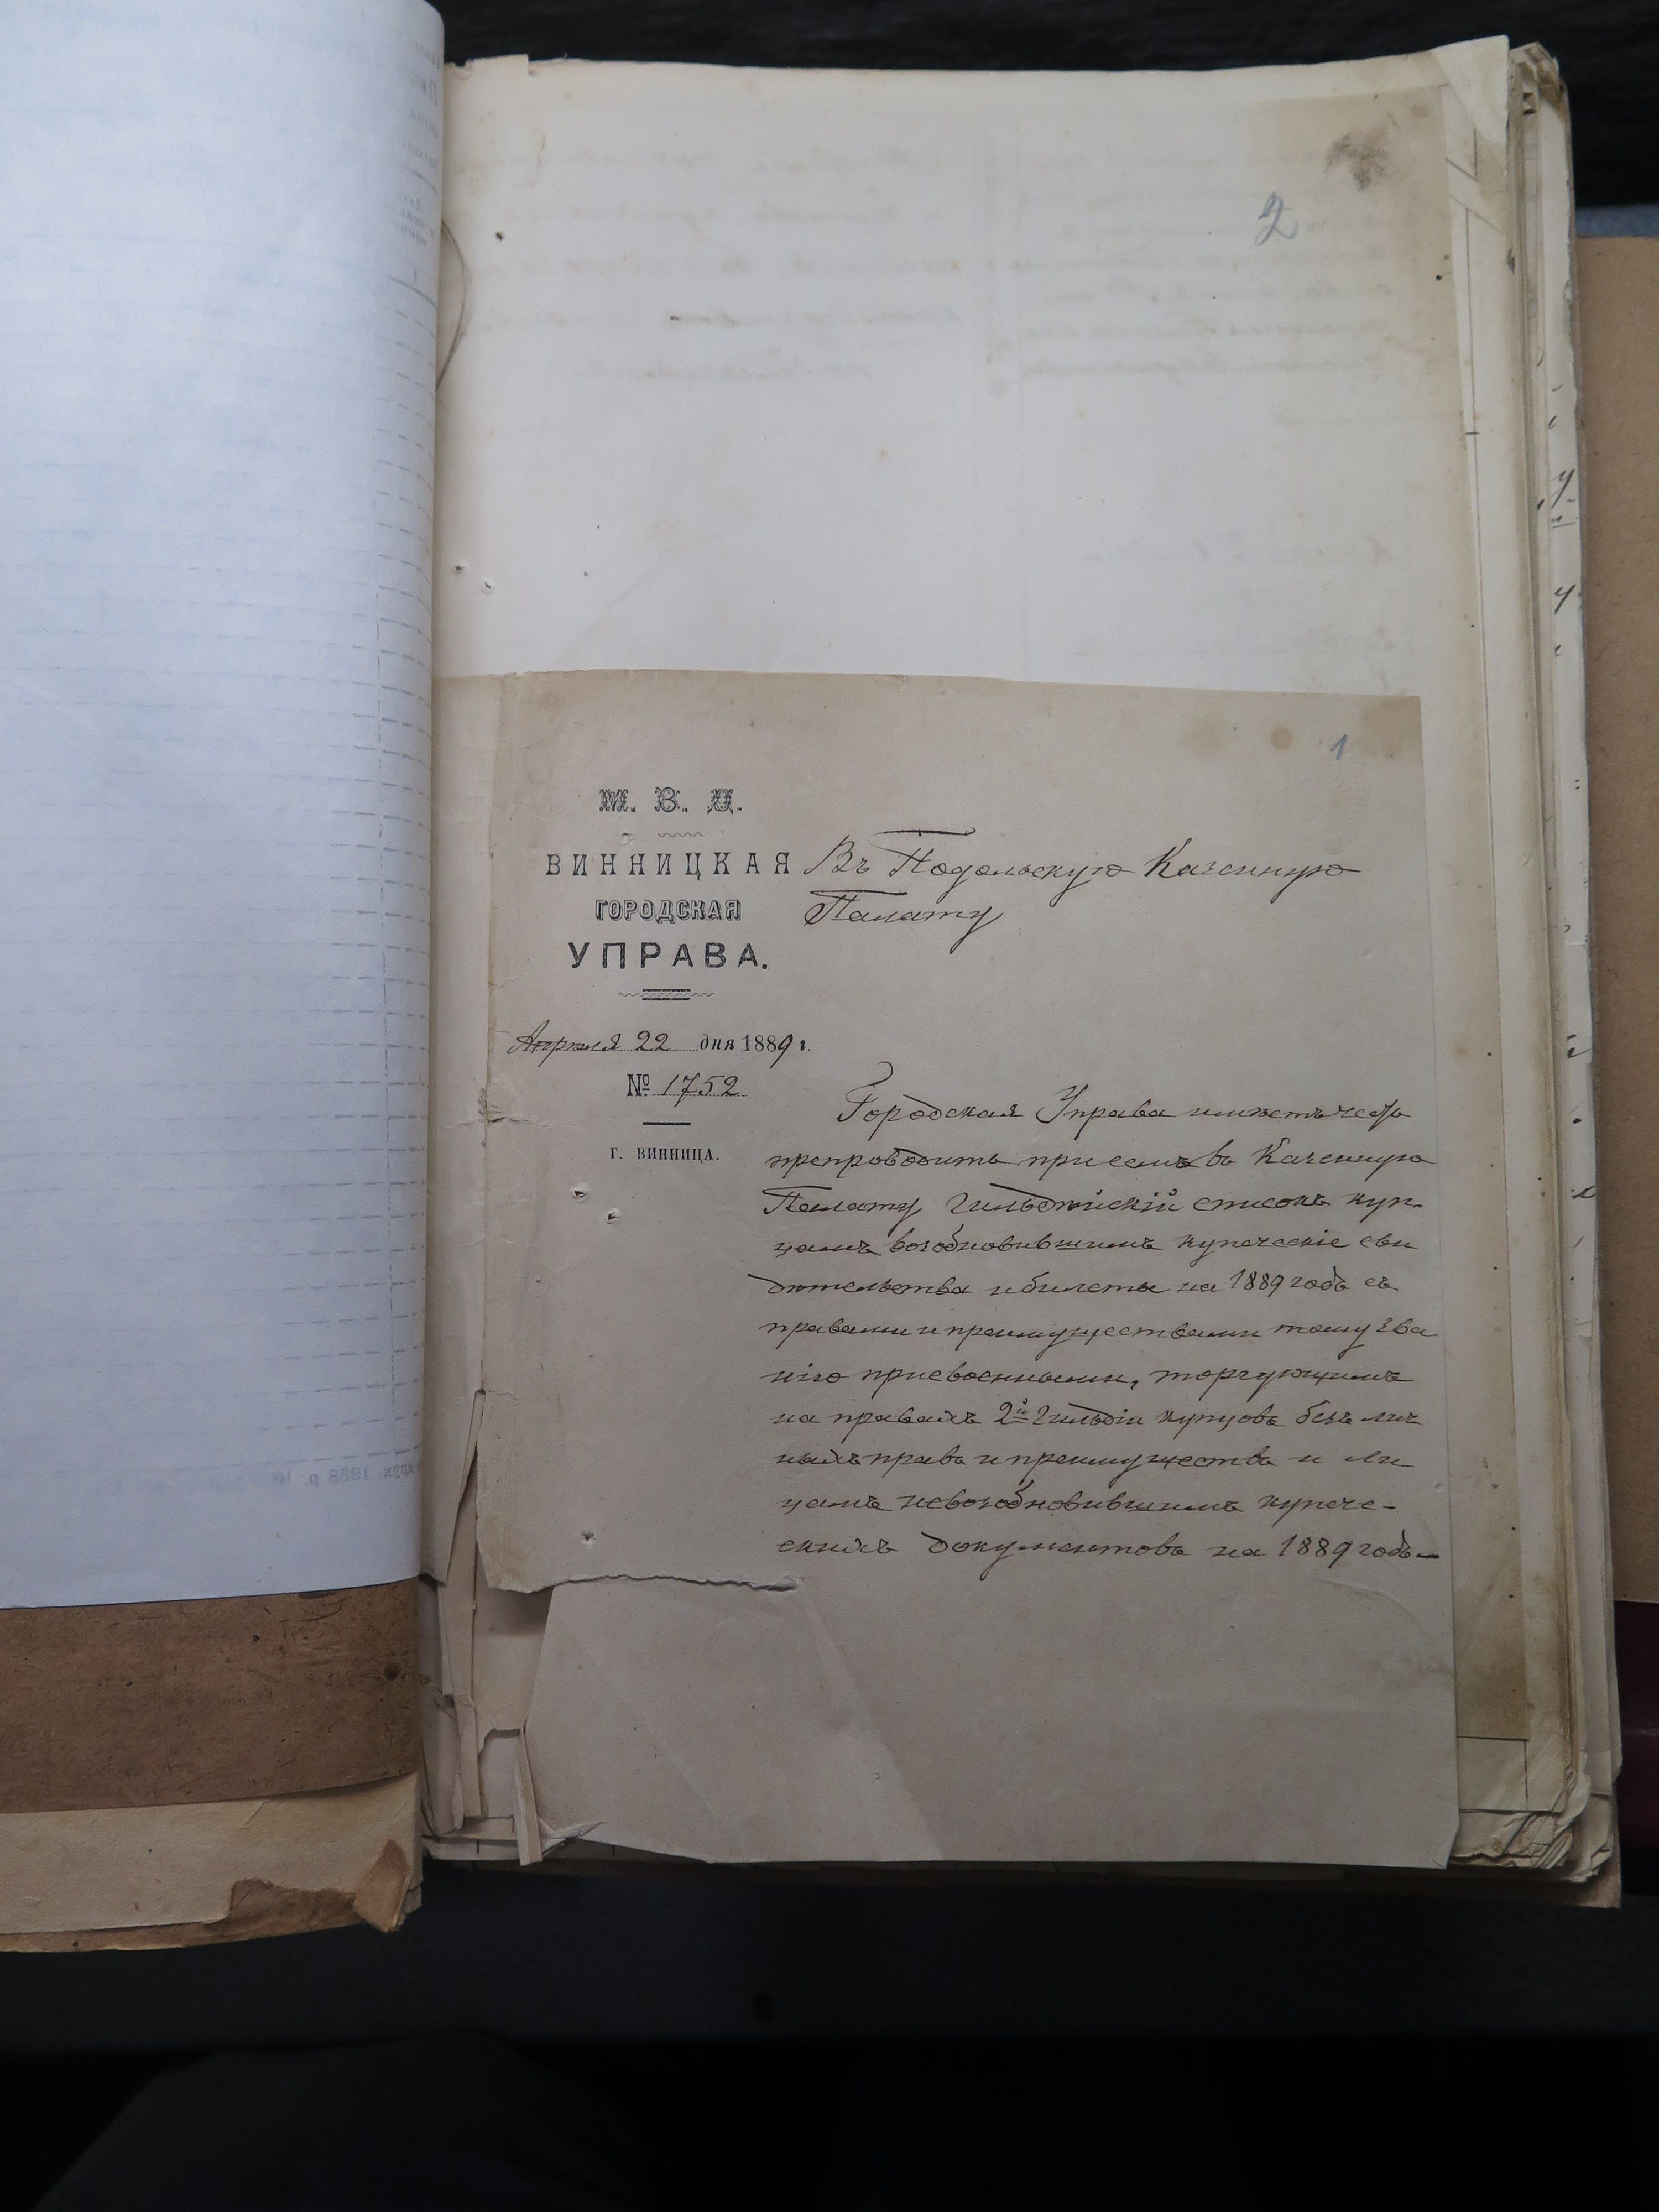 2
1
М. В. Д.
ВИННИЦКАЯ
ГОРОДСКАЯ
УПРАВА.
Апреля 22 дня 1889 г.
№ 1752
г. ВИННИЦА.
Въ Подольскую Казенную
Палату
Городская Управа имѣетъ честь
препроводить при семъ въ Казенную
Палату Гильдейскій списокъ куп
цамъ возобновившимъ купеческіе сви
дѣтельства и билеты на 1889 годъ съ
правами и преимуществами тому зва
нію присвоенными, торгующимъ
на правахъ 2й Гильдіи купцовъ безъ лич
ныхъ правъ и преимуществъ и ли
цамъ невозобновившимъ купече-
скихъ документовъ на 1889 годъ —